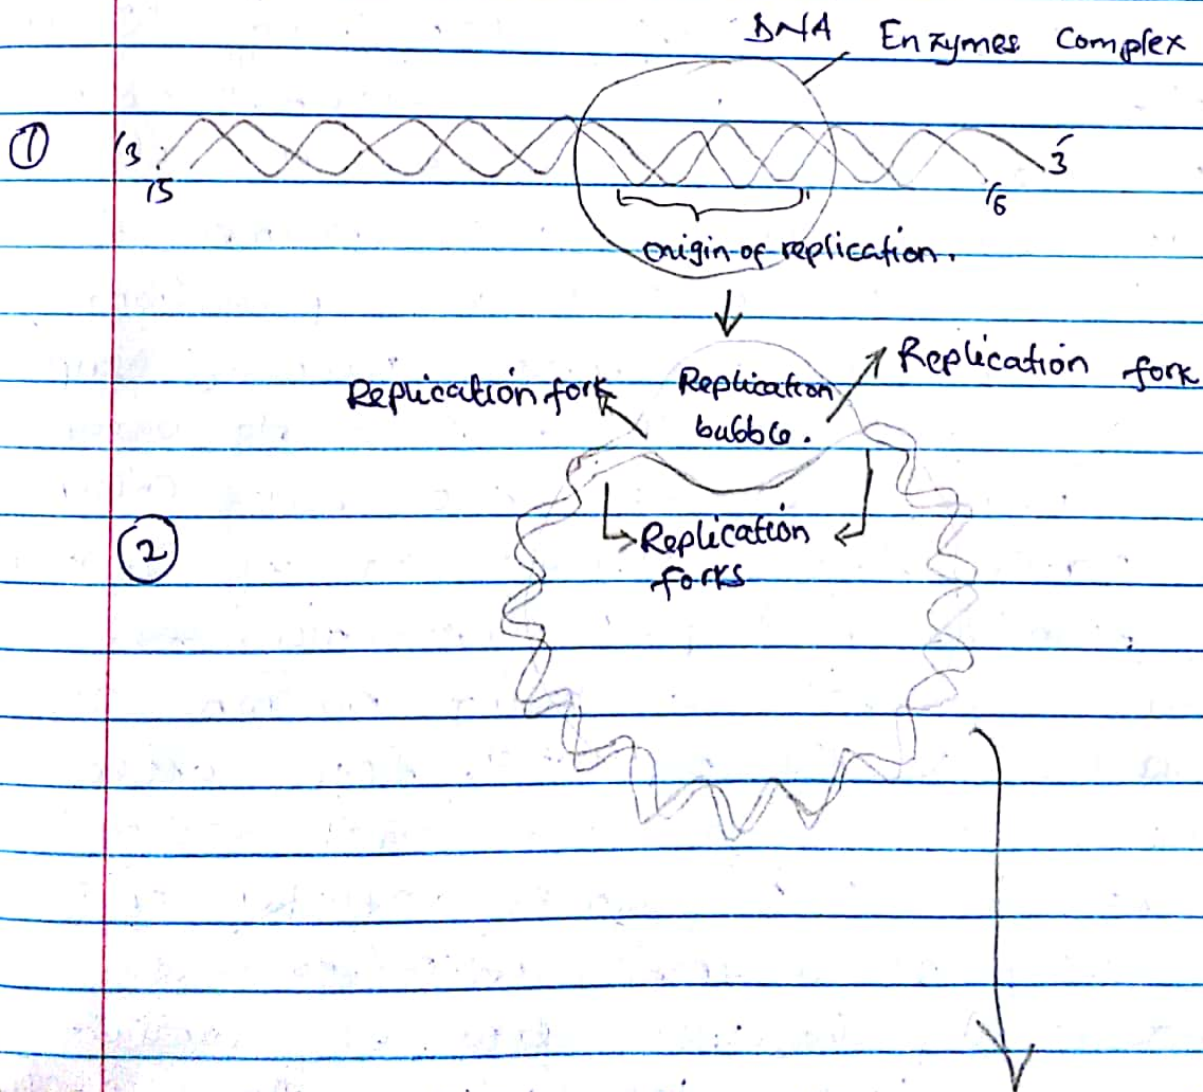 DNA Enzymes Complex
①
/3
3'
/5
/5
origin of replication.
Replication fork
Replication fork
Replication
bubble.
②
Replication
forks